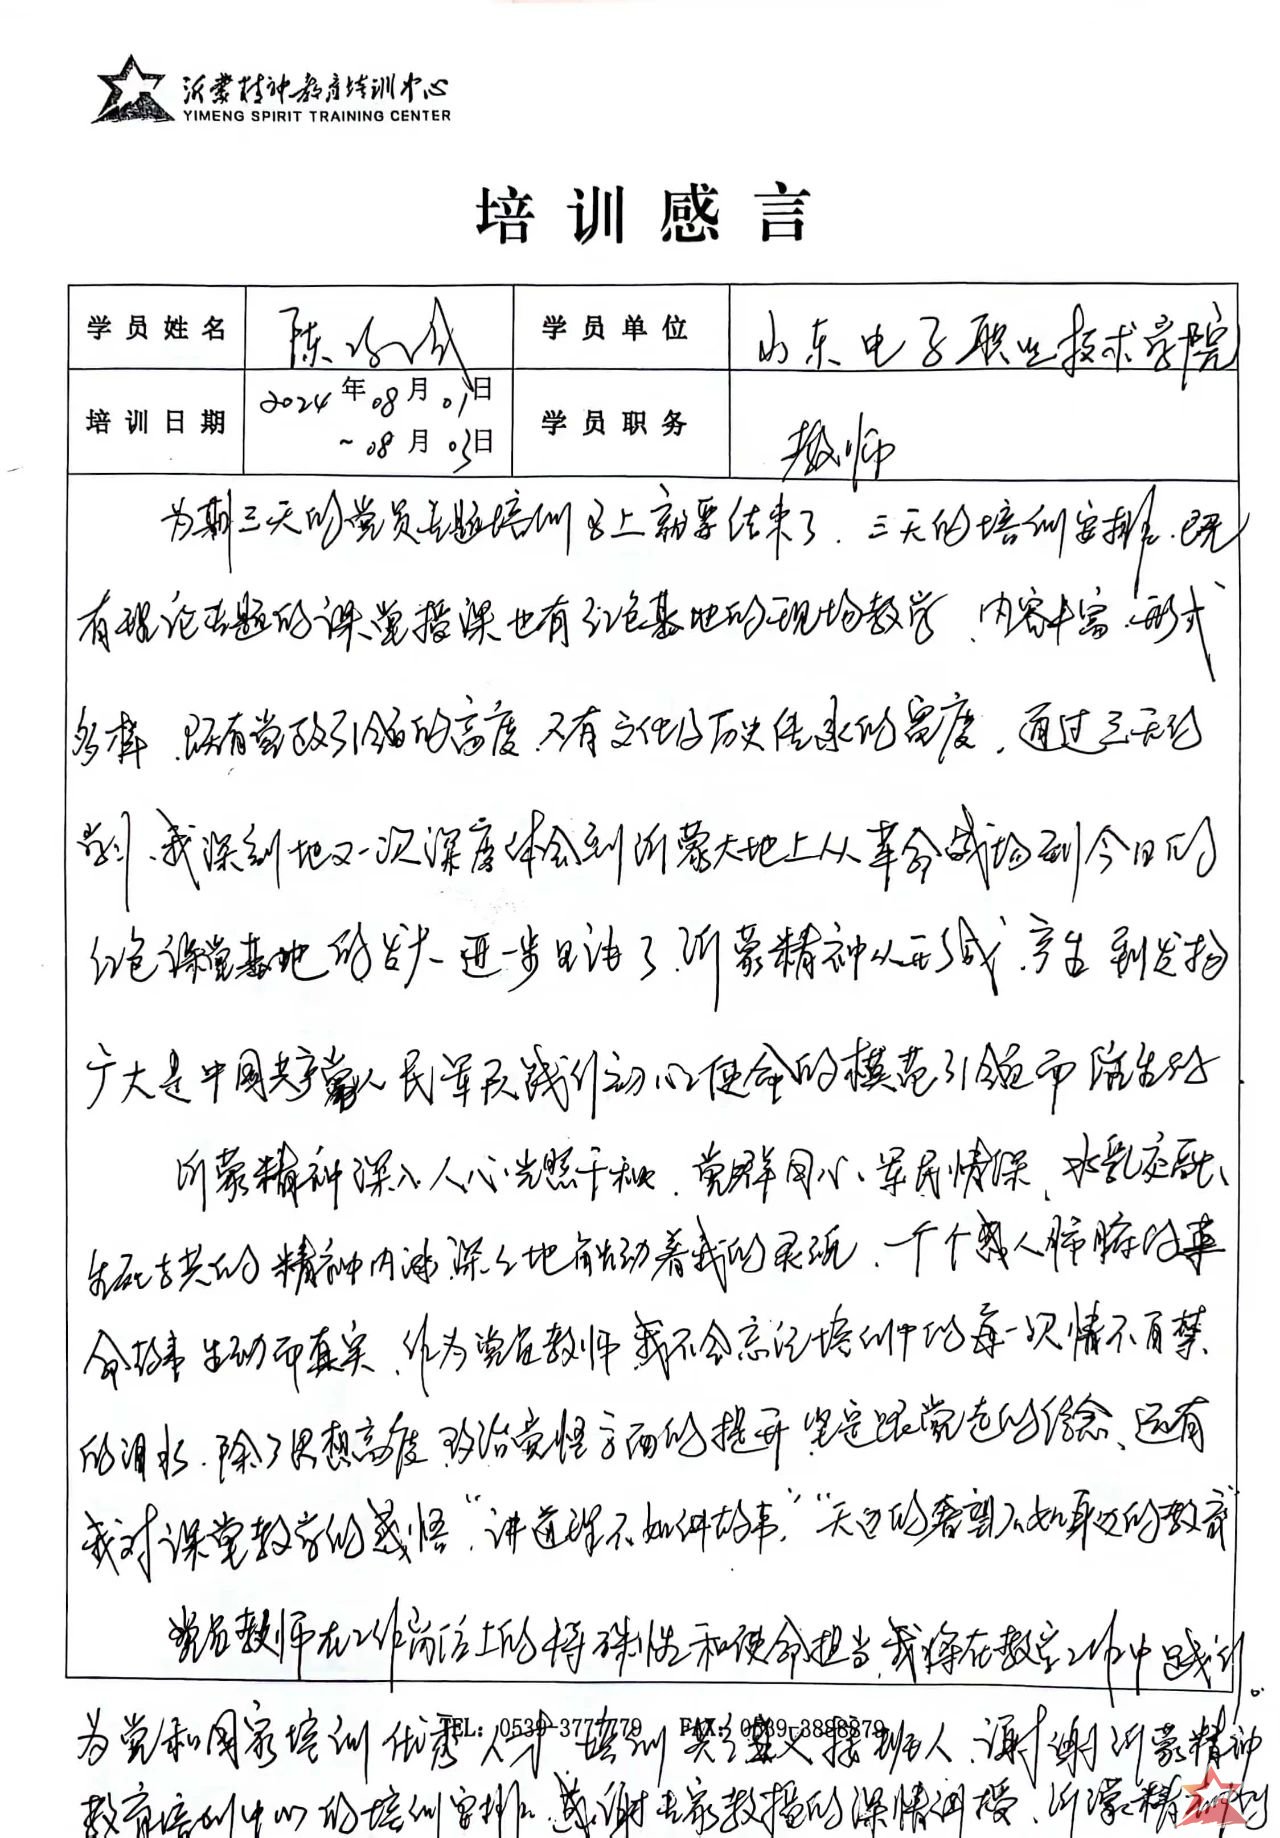 沂蒙精神教育培训中心
YIMENG SPIRIT TRAINING CENTER
培训感言
学员姓名 陈 学员单位 山东电子职业技术学院
培训日期 2024年08月01日
~08月03日 学员职务 教师
为期三天的党员专题培训马上就要结束了,三天的培训安排,既
有理论专题的课堂授课也有红色基地的现场教学,内容丰富、形式
多样,既有党政引领的高度,又有文化的历史传承的宽度,通过三天的
学习,我深刻地又一次深度体会到沂蒙大地上从革命战场到今日的
红色课堂基地的 进一步 了,沂蒙精神从形成、产生到发扬
广大是中国共产党人民军队践行初心使命的模范引领而 的.
沂蒙精神深入人心光照千秋,党群同心、军民情深、水乳交融、
生死与共的精神内涵,深深地 动着我的灵魂,一个个感人肺腑的革
命故事生动而真实,作为党员教师我不会忘记培训中的每一次情不自禁
的泪水,除了思想高度,政治觉悟方面的提升,坚定跟党走的信念,还有
我对课堂教学的感悟“讲道理不如讲故事”,“天边的 不如身边的教育”
党员教师在工作岗位上的特殊性和使命担当,我将在教学工作中践行。
为党和国家培训优秀人才 培训 主义接班人,谢谢沂蒙精神
TEL: 0539-3777779 FAX: 0539-3888879
教育培训中心的培训安排,感谢专家教授的深情讲授,沂蒙精神